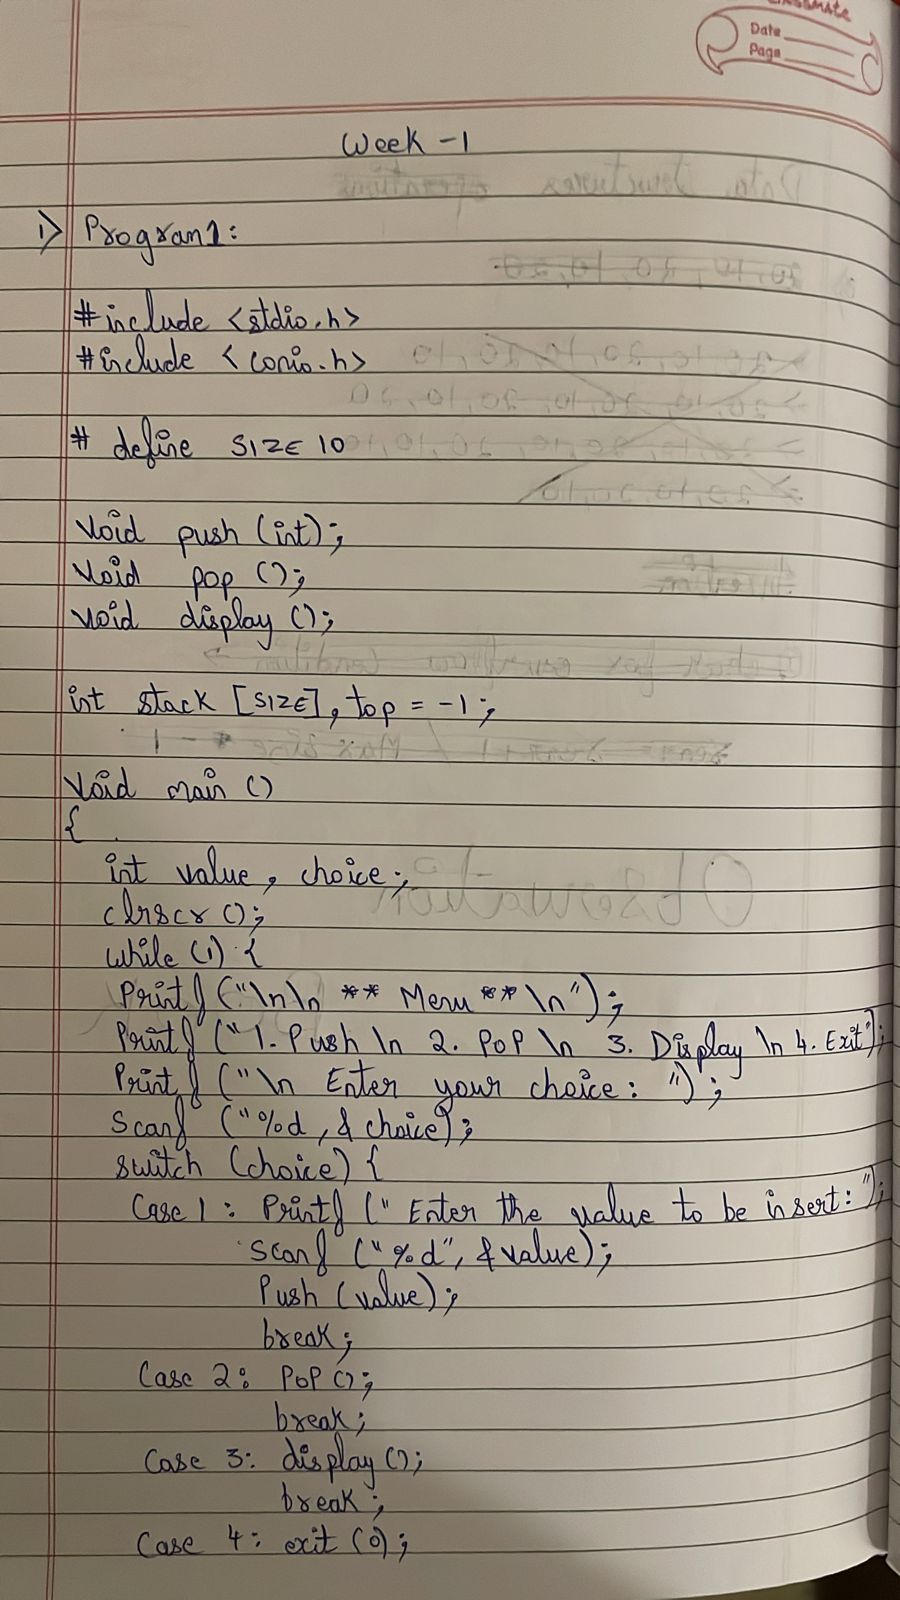 classmate
Date
Page
Week - 1
1) Program1:
#include <stdio.h>
#include <conio.h>
# define SIZE 10
void push (int);
void pop ();
void display ();
int stack [SIZE], top = -1;
void main ()
{
int value, choice;
clrscr ();
while (1) {
Printf ("\n\n ** Menu ** \n");
Printf (" 1. Push \n 2. POP \n 3. Display \n 4. Exit");
Printf ("\n Enter your choice: ");
Scanf ("%d, & choice);
switch (choice) {
Case 1 : Printf (" Enter the value to be insert: ");
Scanf ("%d", &value);
Push (value);
break;
Case 2: POP ();
break;
Case 3: display ();
break;
Case 4: exit (0);